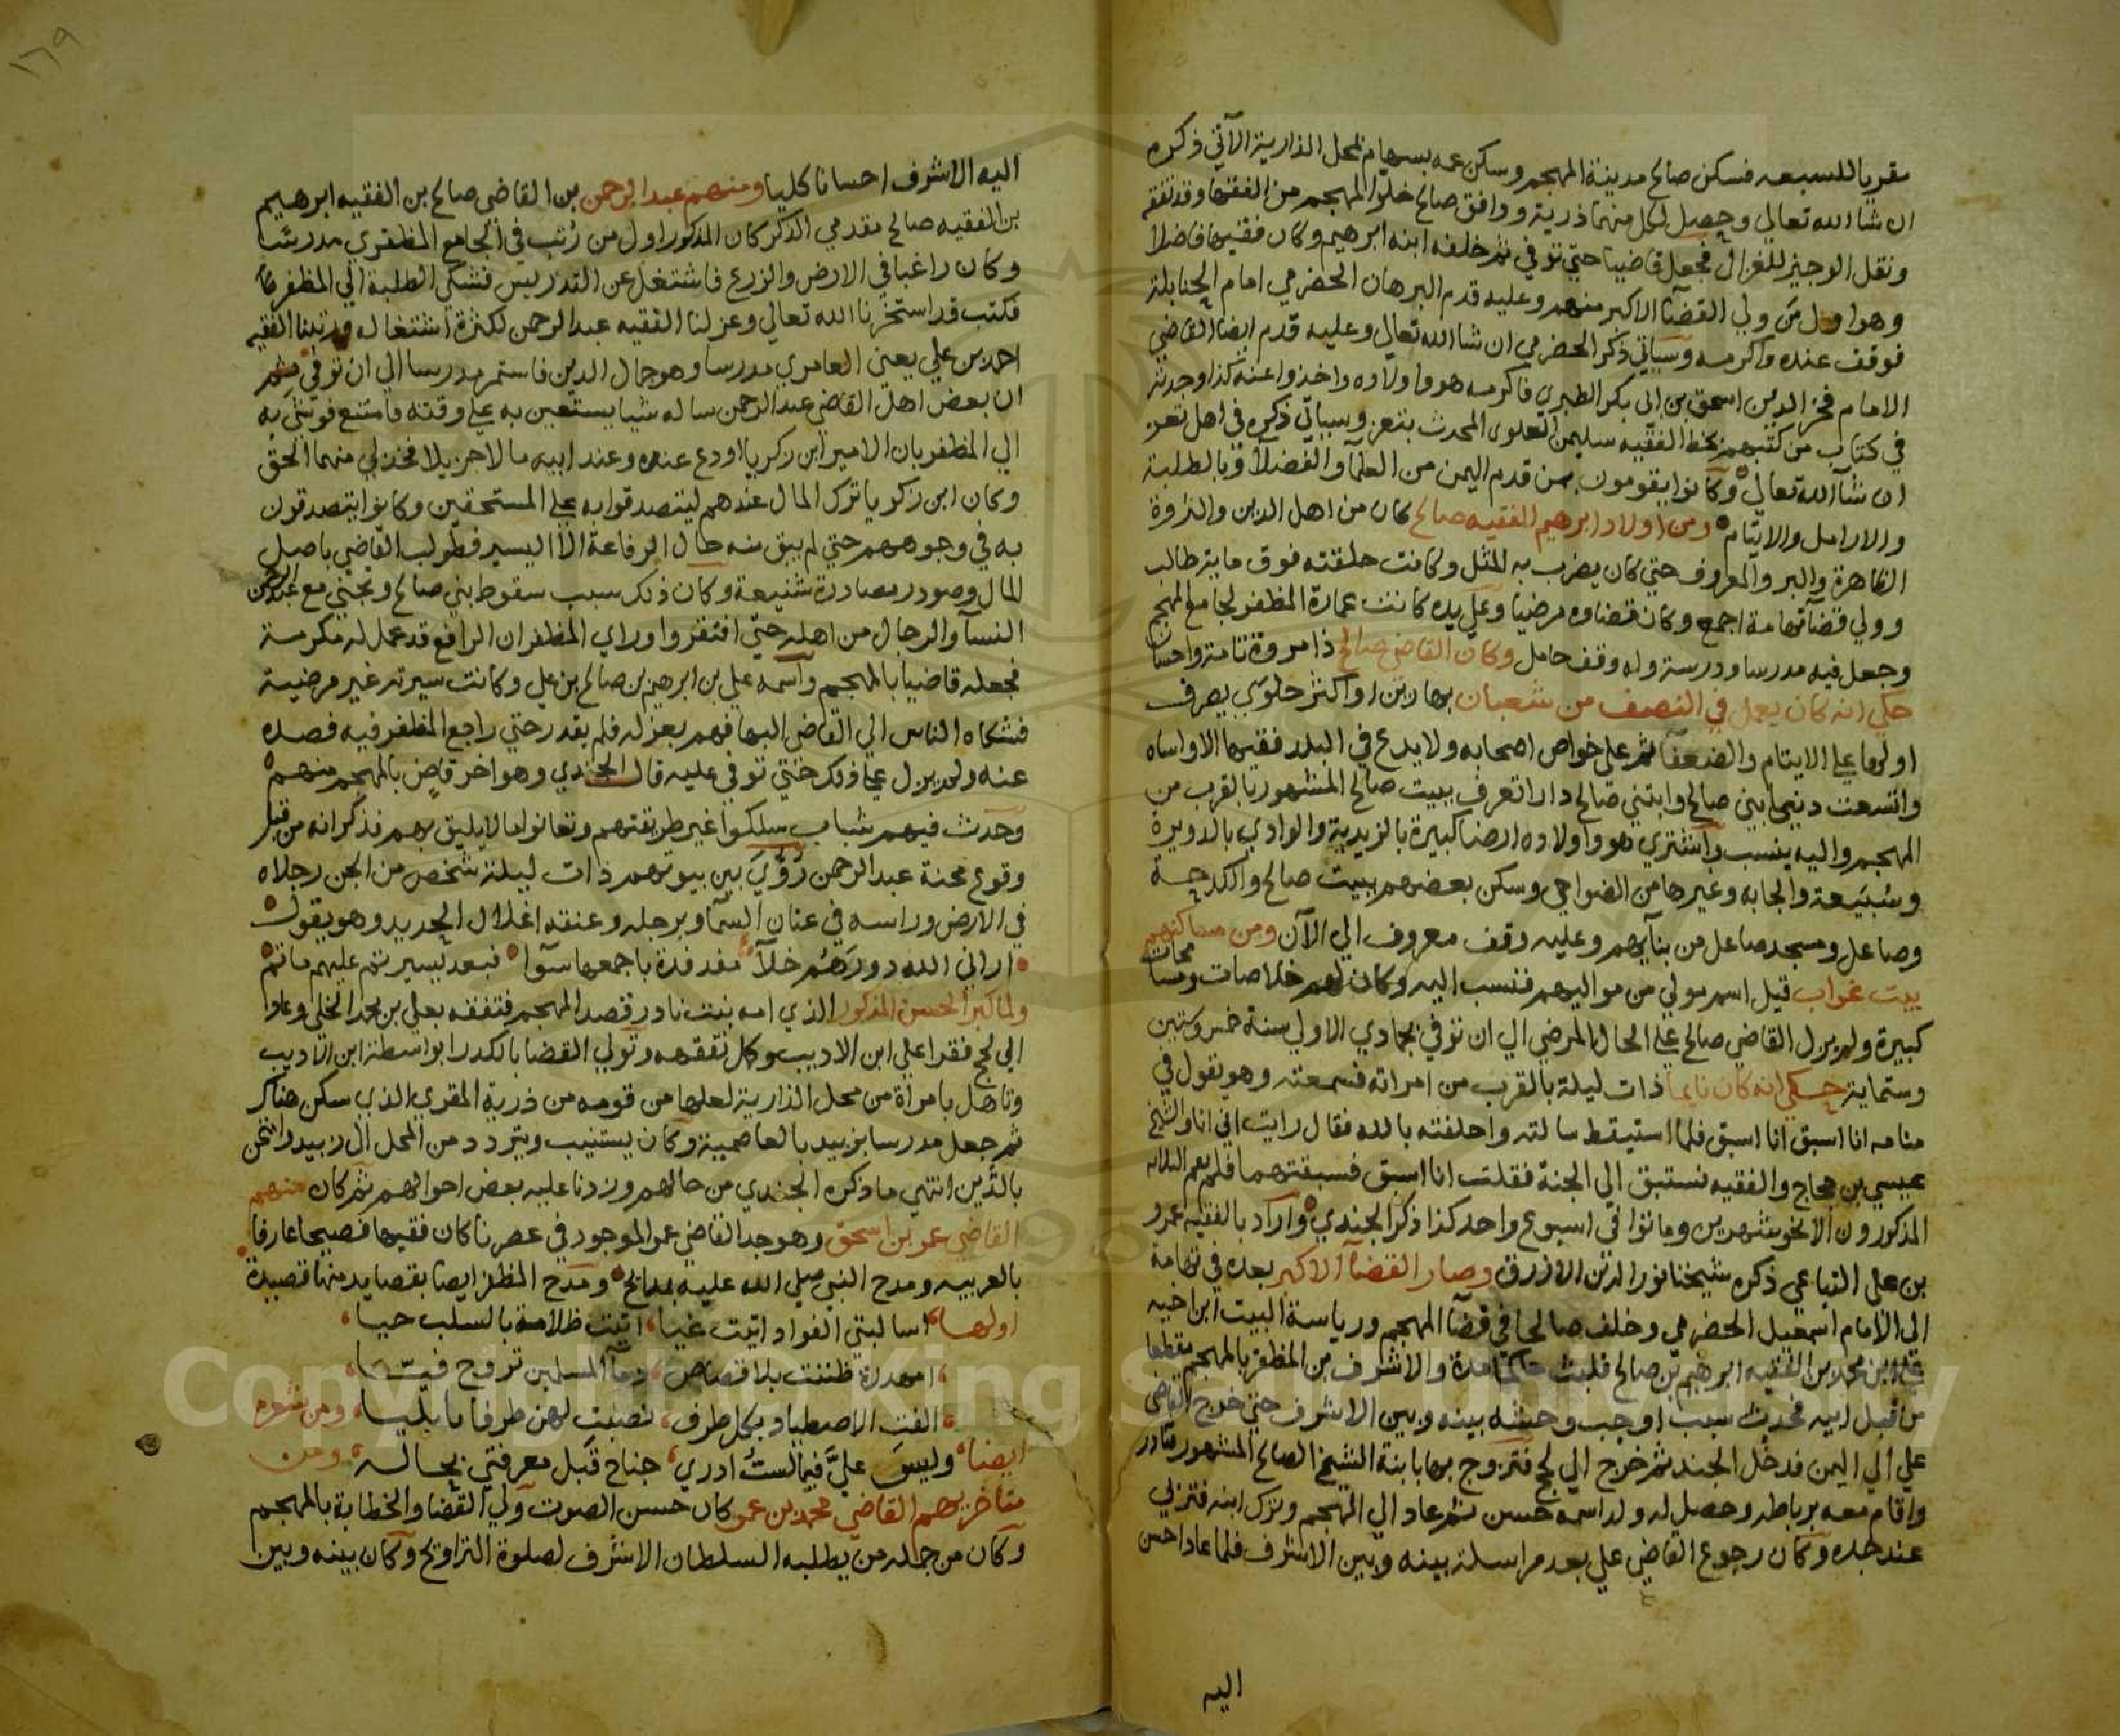 مقريا للسبعه فسكن صالح مدينة المهجم وسكن عمه بسهام بمحل الذارية الآتي ذكره
ان شاالله تعالي وحصل لكل منهما ذرية ووافق صالح خلو المهجم من الفقها وقد تفقه
ونقل الوجيز للغزالي فجعل قاضيا حتي توفي ثم خلفه ابنه ابرهيم وكان فقيها فاضلا
وهو اول من ولي القضا الاكبر منهم وعليه قدم البرهان الحضرمي امام الحنابلة
فوقف عنده واكرمه وسياتي ذكر الحضرمي ان شاالله تعالي وعليه قدم ايضا القاضي
الامام فخر الدين اسحق بن ابي بكر الطبري فاكرمه هو واولاده واخذوا عنه كذا وجدته
في كتاب من كتبهم بخط الفقيه سليمن العلوي المحدث بتعز وسياتي ذكره في اهل تعز
ان شاالله تعالي وكانوا يقومون بمن قدم اليمن من العلما والفضلا وبالطلبة
والارامل والايتام ومن اولاد ابرهيم الفقيه صالح كان من اهل الدين والثروة
الظاهرة والبر والمعروف حتي كان يضرب به المثل وكانت حلقته فوق ماية طالب
وولي قضا تهامة اجمع وكان قضاوه مرضيا وعلي يده كانت عمارة المظفر لجامع المهجم
وجعل فيه مدرسا ودرسة وله وقف حامل وكان القاضي صالح ذا مروة تامة واحسان
حكي انه كان يعمل في النصف من شعبان بهارين او اكثر حلوي يصرف
اولها علي الايتام والضعفا ثم علي خواص اصحابه ولا يدع في البلد فقيها الا واساه
واتسعت دنيا بني صالح وابتني صالح دارا تعرف ببيت صالح المشهور بالقرب من
المهجم واليه ينسب واشتري هو واولاده ارضا كبيرة بالزيدية والوادي بالدويرة
وسبيعة والجابه وغيرها من الضواحي وسكن بعضهم ببيت صالح والكدحة
وصاعل ومسجد صاعل من بنايهم وعليه وقف معروف الي الآن ومن مساكنهم
بيت غواب قيل اسم مولي من مواليهم فنسب اليه وكان لهم خلاصات ومسامحات
كبيرة ولم يزل القاضي صالح علي الحال المرضي الي ان توفي بجمادي الاولي سنة خمس وستين
وستماية حكي انه كان نايما ذات ليلة بالقرب من امراته فسمعته وهو يقول في
منامه انا اسبق انا اسبق فلما استيقظ سالته واحلفته بالله فقال رايت اني انا والشيخ
عيسي بن حجاج والفقيه نستبق الي الجنة فقلت انا اسبق فسبقتهما فلم يقم الثلاثه
المذكورون الا نحو شهرين وماتوا في اسبوع واحد كذا ذكر الجندي واراد بالفقيه عمرو
بن علي التباعي ذكره شيخنا نور الدين الازرق وصار القضا الاكبر بعده في تهامة
الي الامام اسمعيل الحضرمي وخلف صالحا في قضا المهجم ورياسة البيت ابن اخيه
علي بن محمد بن الفقيه ابرهيم بن صالح فلبث حاكما مدة والاشرف بن المظفر بالمهجم مقطعا
من قبل ابيه فحدث سبب اوجب وحشه بينه وبين الاشرف حتي خرج القاضي
علي الي اليمن فدخل الجند ثم خرج الي لحج فتزوج بها بابنة الشيخ الصالح المشهور نادر
واقام معه برباطه وحصل له ولد اسمه حسن ثم عاد الي المهجم وترك ابنه فتربي
عند جده وكان رجوع القاضي علي بعد مراسلة بينه وبين الاشرف فلما عاد احسن
اليه
١٦٩
اليه الاشرف احسانا كليا ومنهم عبد الرحمن بن القاضي صالح بن الفقيه ابرهيم
بن الفقيه صالح مقدمي الذكر كان المذكور اول من رتب في الجامع المظفري مدرسا
وكان راغبا في الارض والزرع فاشتغل عن التدريس فشكي الطلبة الي المظفر
فكتب قد استخرنا الله تعالي وعزلنا الفقيه عبد الرحمن لكثرة اشتغاله ورتبنا الفقيه
احمد بن علي يعني العامري مدرسا وهو جمال الدين فاستمر مدرسا الي ان توفي ثم
ان بعض اهل القاضي عبد الرحمن ساله شيا يستعين به علي وقته فامتنع فوشي به
الي المظفر بان الامير ابن زكريا اودع عنده وعند ابيه مالا جزيلا فخذ لي منهما الحق
وكان ابن زكريا ترك المال عندهم ليتصدقوا به علي المستحقين وكانوا يتصدقون
به في وجوههم حتي لم يبق منه حال الرفاعة الا اليسير فطولب القاضي باصل
المال وصودر مصادرة شنيعة وكان ذلك سبب سقوط بني صالح وبجني مع عبد الرحمن
النسا والرجال من اهله حتي افتقروا وراي المظفر ان الرافع قد عمل له مكرمة
فجعله قاضيا بالمهجم واسمه علي بن ابرهيم بن صالح بن علي وكانت سيرته غير مرضية
فشكاه الناس الي القاضي البها فهم بعزله فلم يقدر حتي راجع المظفر فيه فصده
عنه ولم يزل علي ذلك حتي توفي عليه قال الجندي وهو اخر قاض بالمهجم منهم
وحدث فيهم شباب سلكوا غير طريقتهم وتعانوا ما لا يليق بهم فذكر انه من قبل
وقوع محنة عبد الرحمن رؤي بين بيوتهم ذات ليلة شخص من الجن رجلاه
في الارض وراسه في عنان السما وبرجله وعنقه اغلال الحديد وهو يقول
اراني الله دورهم خلآ مفدفدة باجمعها سوآ فبعد يسير تم عليهم ما تم
ولما كبر الحسن المذكور الذي امه بنت نادر قصد المهجم فتفقه بعلي بن محمد الخلي وعاد
الي لحج فقرا علي ابن الاديب وكمل تفقهه وتولي القضا بالكدرا بواسطة ابن الاديب
وتاهل بامراة من محل الذارية لعلها من قومه من ذرية المقري الذي سكن هناك
ثم جعل مدرسا بزبيد بالعاصمية وكان يستنيب ويتردد من المحل الي زبيد وامتحن
بالدين انتهي ما ذكره الجندي من حالهم وزدنا عليه بعض احوالهم ثم كان منهم
القاضي عمر بن اسحق وهو جد القاضي عمر الموجود في عصرنا كان فقيها فصيحا عارفا
بالعربيه ومدح النبي صلي الله عليه بمدايح ومدح المظفر ايضا بقصايد منها قصيدة
اولها اسالبتي الفواد اتيت غيا اتيت ظلامة بالسلب حيا
امهدرة ظننت بلا قصاص دمآ المسلمين تروح فيّا
الفت الاصطياد بكل طرف نصبت لهن طرفا بابليا ومن شعره
ايضا وليس عليّ فيما لست ادري جناح قبل معرفتي بحاله ومن
متاخريهم القاضي محمد بن عمر كان حسن الصوت ولي القضا والخطابة بالمهجم
وكان من جمله من يطلبه السلطان الاشرف لصلوة التراويح وكان بينه وبين
Copyright © King Saud University